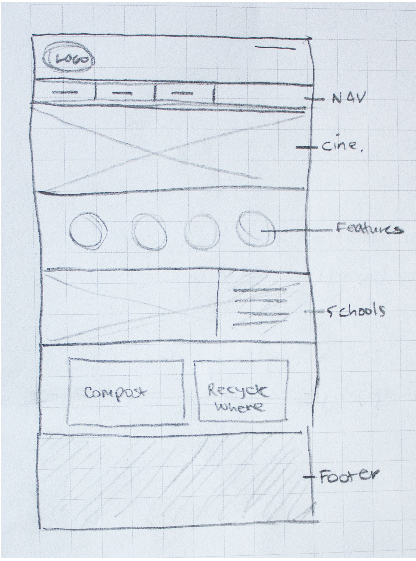 LOGO
NAV
Cine.
Features
Schools
Compost
Recycle
Where
Footer